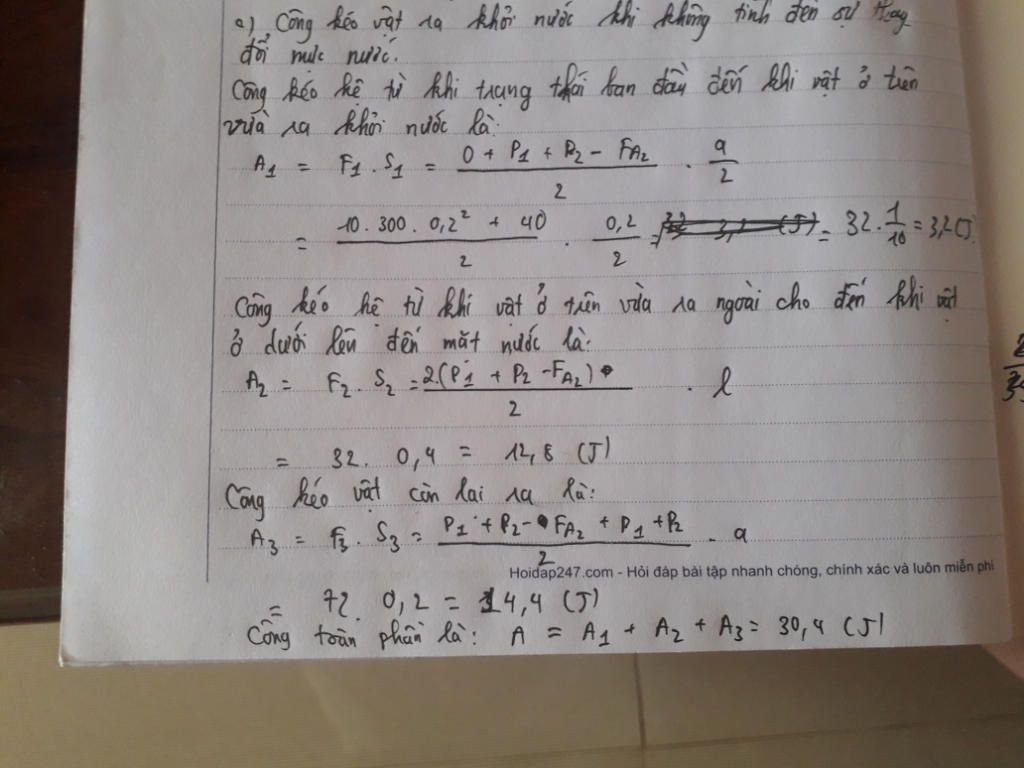 a) Công kéo vật ra khỏi nước khi không tính đến sự thay
đổi mức nước.
Công kéo hệ từ khi trạng thái ban đầu đến khi vật ở trên
vừa ra khỏi nước là:
A₁ = F₁ . S₁ = (0 + P₁ + P₂ - F_A₂)/2 . a/2
= (10 . 300 . 0,2² + 40)/2 . 0,2/2 = 32 . 1/10 = 3,2 (J)
Công kéo hệ từ khi vật ở trên vừa ra ngoài cho đến khi vật
ở dưới lên đến mặt nước là:
A₂ = F₂ . S₂ = 2.(P₁ + P₂ - F_A₂)/2 . l
= 32 . 0,4 = 12,8 (J)
Công kéo vật còn lại ra là:
A₃ = F₃ . S₃ = (P₁ + P₂ - F_A₂ + P₁ + P₂)/2 . a
Hoidap247.com - Hỏi đáp bài tập nhanh chóng, chính xác và luôn miễn phí
= 72 . 0,2 = 14,4 (J)
Công toàn phần là: A = A₁ + A₂ + A₃ = 30,4 (J)